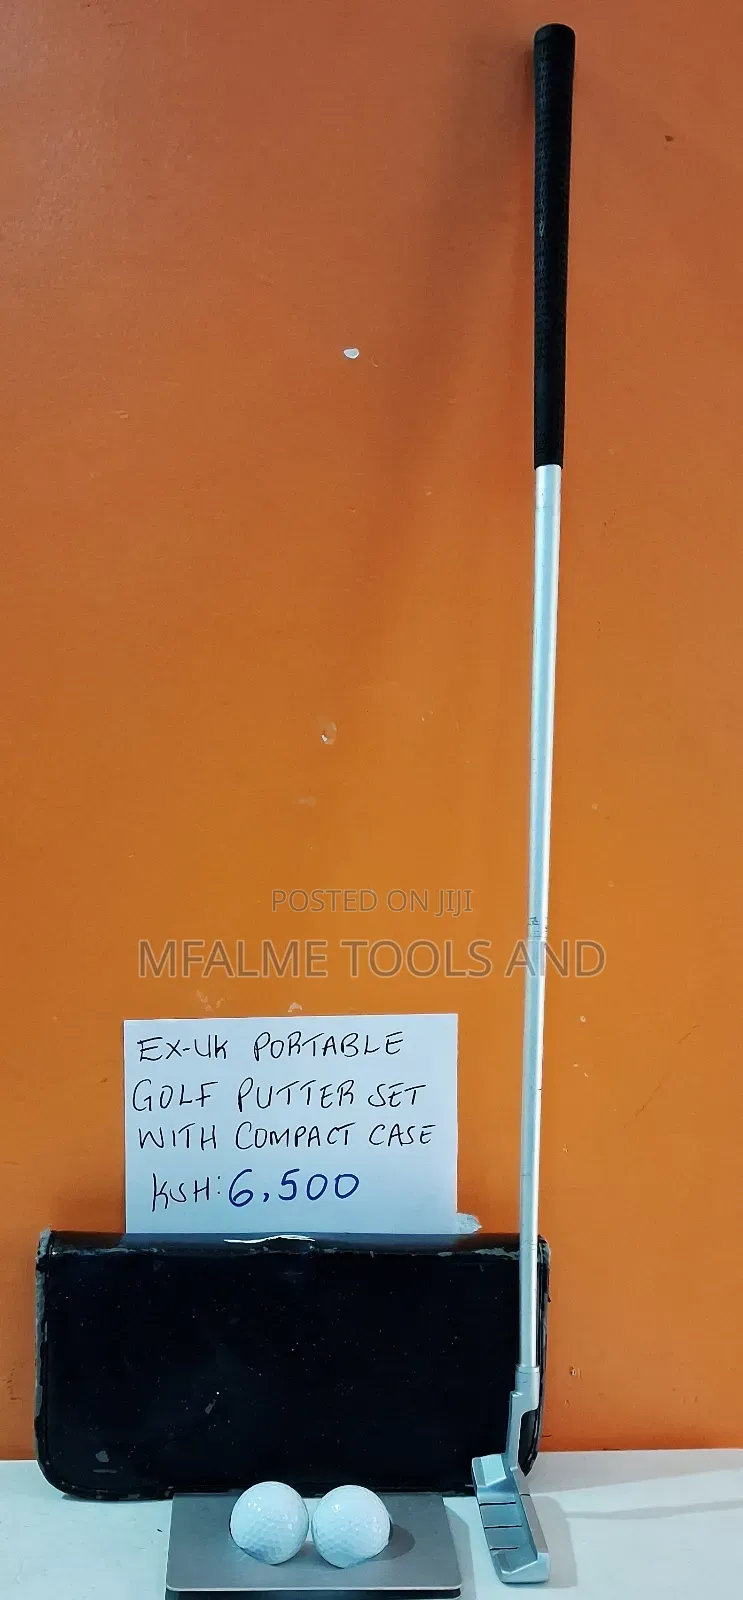 POSTED ON JIJI
MFALME TOOLS AND
EX-UK PORTABLE
GOLF PUTTER SET
WITH COMPACT CASE
KSH: 6,500